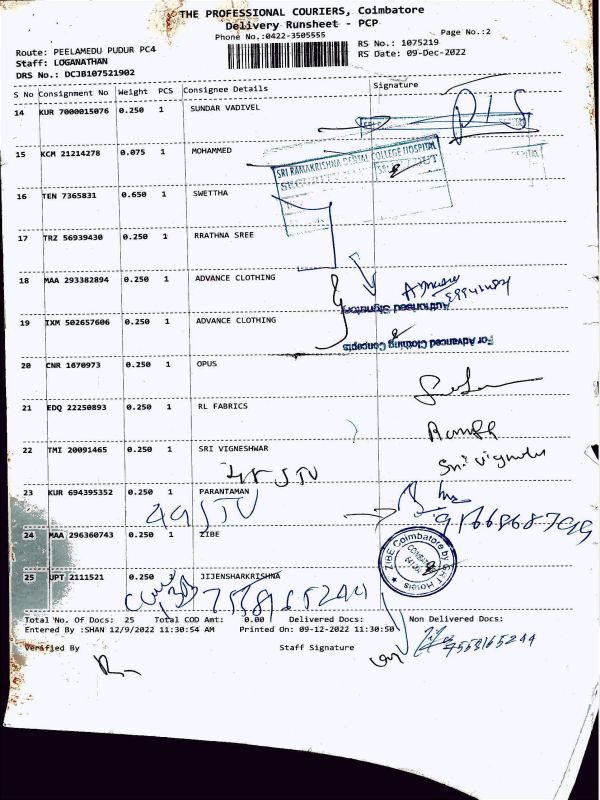 THE PROFESSIONAL COURIERS, Coimbatore
Delivery Runsheet - PCP
Phone No.:0422-3505555
Page No.:2
Route: PEELAMEDU PUDUR PC4
RS No.: 1075219
Staff: LOGANATHAN
RS Date: 09-Dec-2022
DRS No.: DCJB107521902
S No Consignment No Weight PCS Consignee Details Signature
14 KUR 7000015076 0.250 1 SUNDAR VADIVEL
15 KCM 21214278 0.075 1 MOHAMMED
SRI RAMAKRISHNA DENTAL COLLEGE HOSPITAL
16 TEN 7365831 0.650 1 SWETTHA
17 TRZ 56939430 0.250 1 RRATHNA SREE
18 MAA 293382894 0.250 1 ADVANCE CLOTHING
Authorised Signatory
19 IXM 502657606 0.250 1 ADVANCE CLOTHING
For Advanced Clothing Concepts
20 CNR 1670973 0.250 1 OPUS
21 EDQ 22250893 0.250 1 RL FABRICS
22 TMI 20091465 0.250 1 SRI VIGNESHWAR
23 KUR 694395352 0.250 1 PARANTAMAN
24 MAA 296360743 0.250 1 ZIBE
ZIBE Coimbatore by GRT Hotels
25 UPT 2111521 0.250 JIJENSHARKRISHNA
Total No. Of Docs: 25 Total COD Amt: 0.00 Delivered Docs: Non Delivered Docs:
Entered By :SHAN 12/9/2022 11:30:54 AM Printed On: 09-12-2022 11:30:50
Verified By Staff Signature